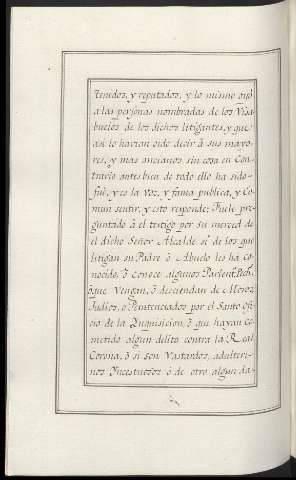 tenidos, y reputados, y lo mismo oyó
a las personas nombradas de los Visa-
buelos de los dichos litigantes, y que
asi lo harian oido decir á sus mayo-
res, y mas ancianos sin cosa en Con-
trario antes bien de todo ello ha sido
fué, y es la voz, y fama publica, y Co-
mun sentir, y esto responde: Fuele pre-
guntado á el testigo por su merced de
el dicho Señor Alcalde si de los que
litigan su Padre ó Abuelo les há co-
nocido, ó conoce algunos Parient.
óque Vengan, ó desciendan de Moros,
Judios, o Penitenciados por el Santo ofi-
cio de la Ynquisicion, ó qui hayan co-
metido algun delito contra la Real
Corona, ó si son Vastardos, adulteri-
nos Yncestuosos ó de otro algun da-